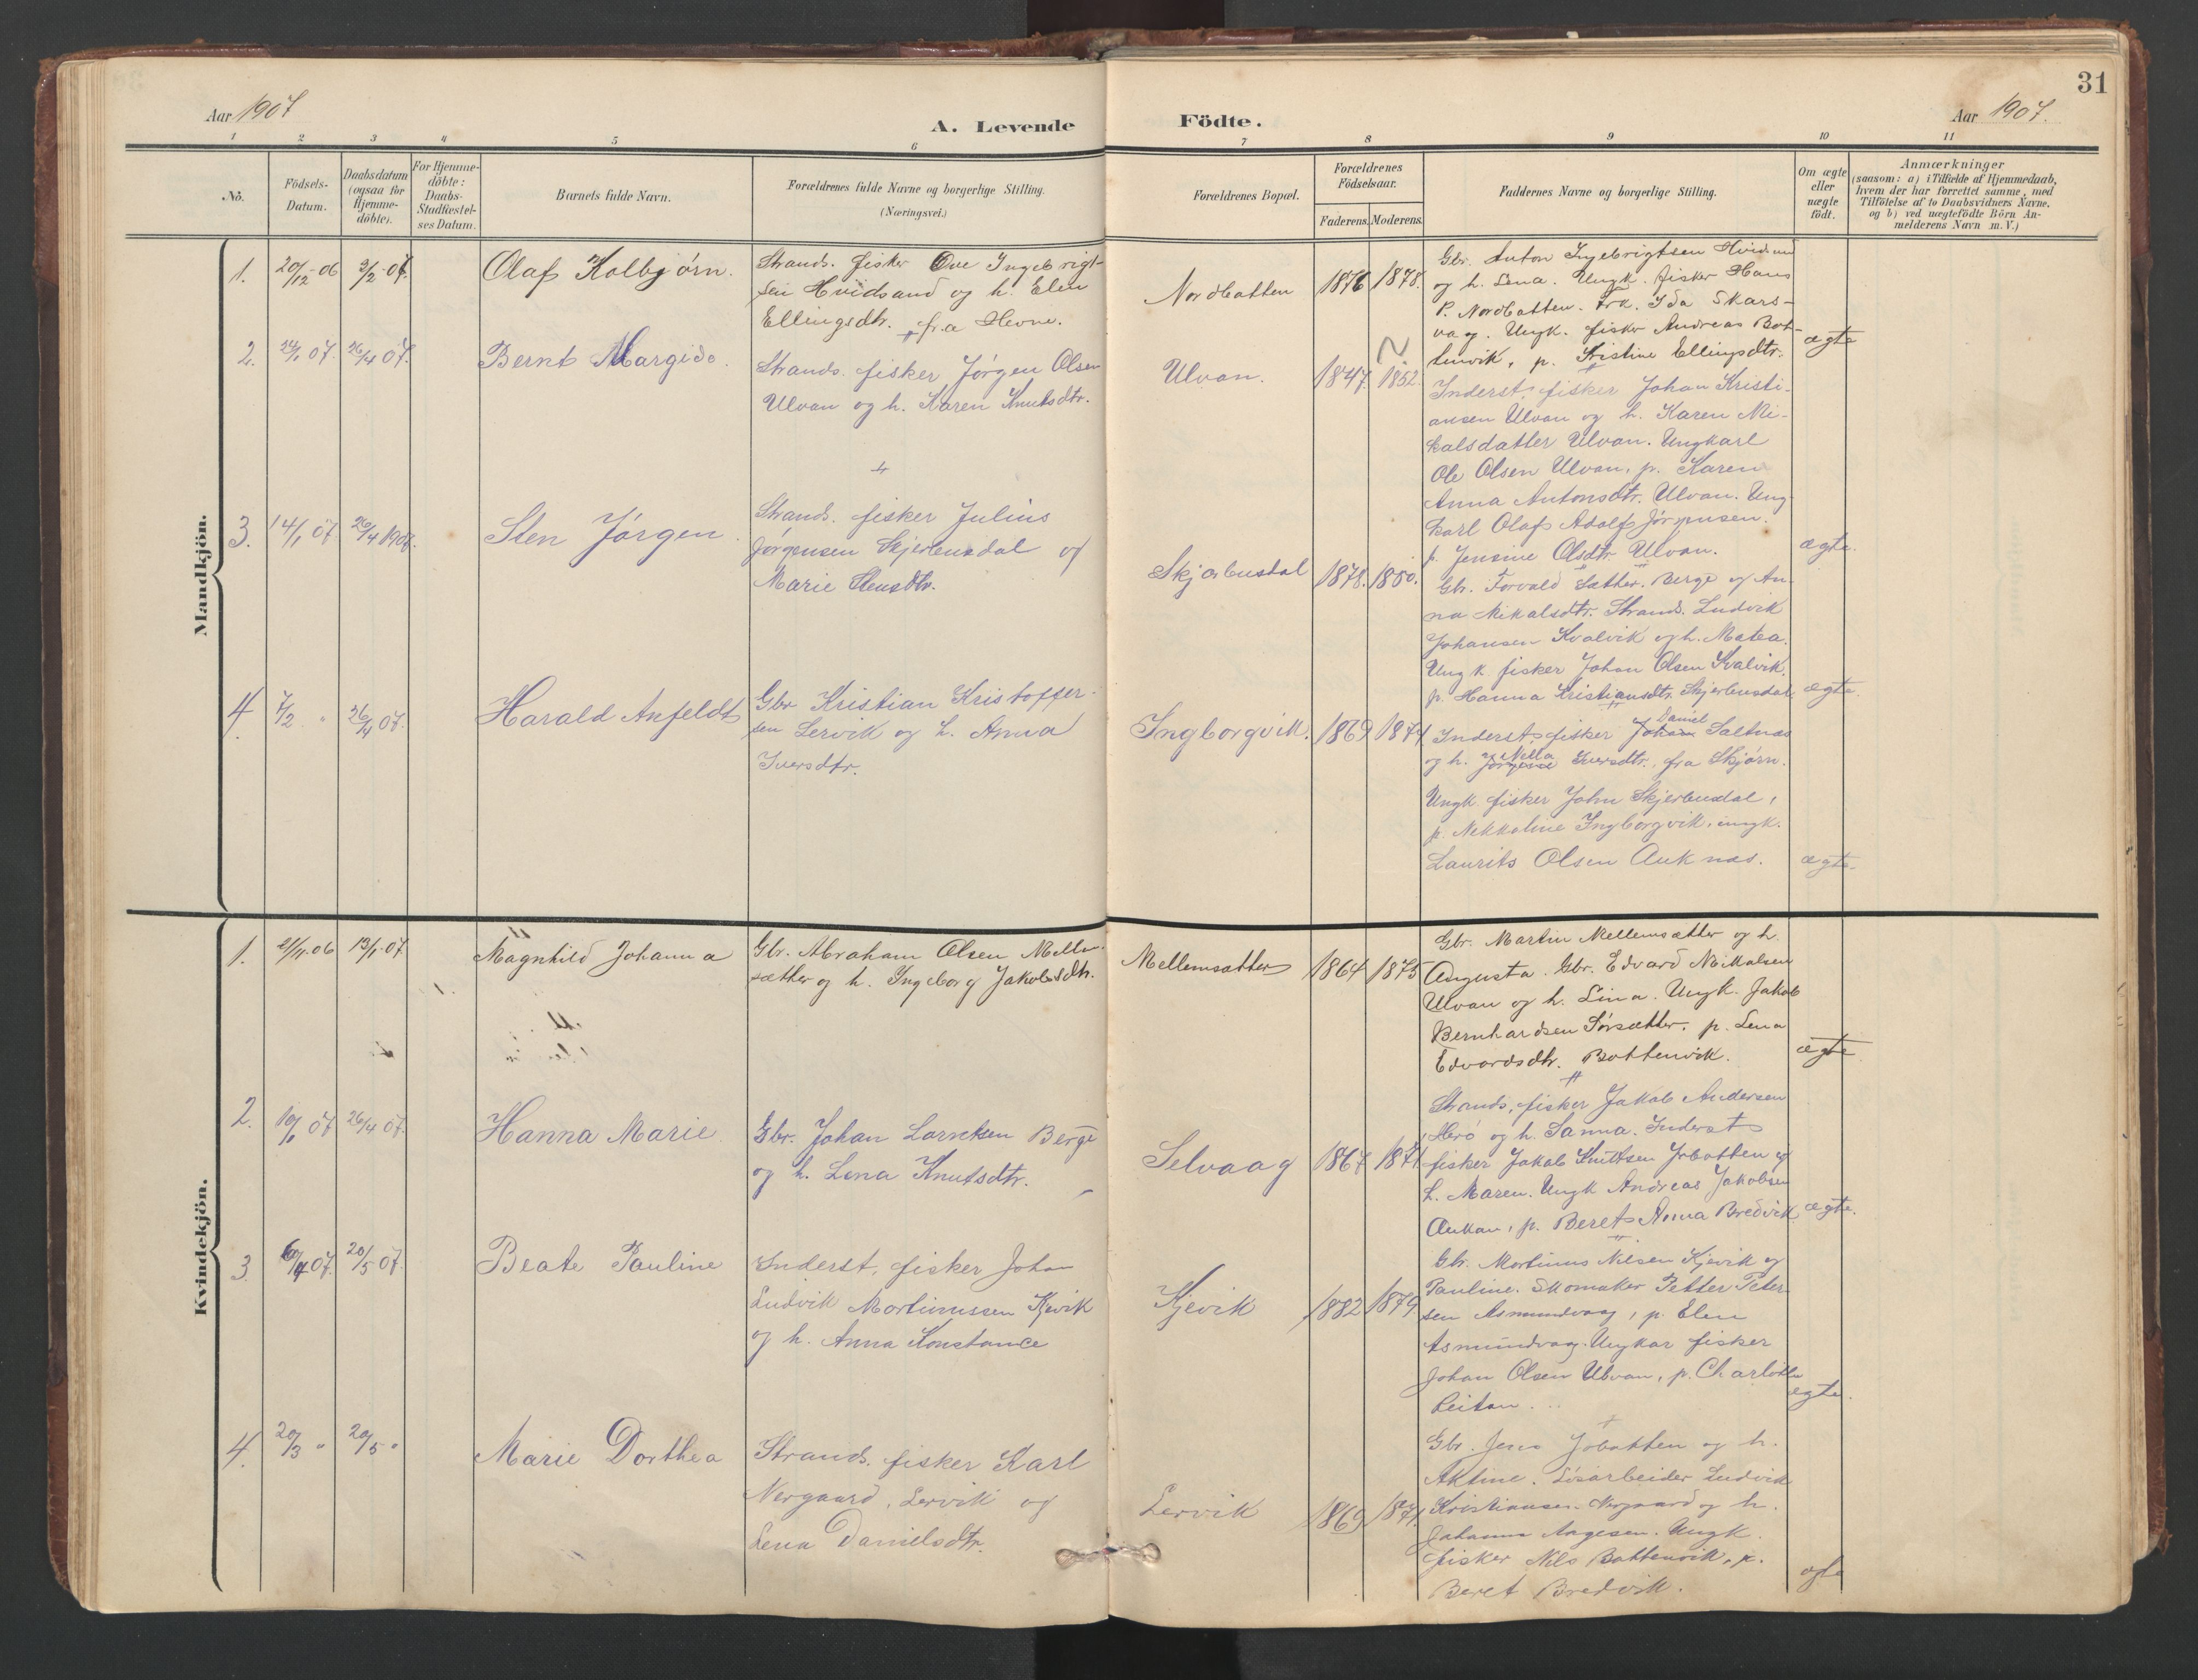 31
Aar 1907
A. Levende
Födte.
Aar 1907.
1 2 3 4 5 6 7 8 9 10 11
No.
Födsels-
Datum.
Daabsdatum
(ogsaa for
Hjemme-
döbte).
For Hjemme-
döbte:
Daabs-
Stadfæstel-
ses Datum.
Barnets fulde Navn.
Forældrenes fulde Navne og borgerlige Stilling.
(Næringsvei.)
Forældrenes Bopæl.
Forældrenes
Födselsaar.
Faderens. Moderens.
Faddernes Navne og borgerlige Stilling.
Om ægte
eller
uægte
födt.
Anmærkninger
(saasom: a) i Tilfælde af Hjemmedaab,
hvem der har forrettet samme, med
Tilföielse af to Daabsvidners Navne,
og b) ved uægtefödte Börn An-
melderens Navn m. V.)
Mandkjön.
1. 20/12-06 3/2-07. Olaf Kolbjørn.
Strands. fisker Ove Ingebrigt-
sen Hvidsand og h. Elen
Ellingsdtr. fra Hevne.
Nordbotten 1876 1878.
Gbr. Anton Ingebrigtsen Hvidsand
og h. Lena. Ungk. fisker Hans
P. Nordbotten. Frk. Ida Skars-
vag. Ungk. fisker Andreas Bot-
tenvik, p. Kristine Ellingsdtr.
ægte
2. 24/1 07. 26/4 07. Bernt Margido.
Strands. fisker Jørgen Olsen
Ulvan og h. Karen Knutsdtr.
Ulvan. 1847. 1852.
Inderst, fisker Johan Kristi-
ansen Ulvan og h. Karen Mi-
kalsdatter Ulvan. Ungkarl
Ole Olsen Ulvan, p. Karen
Anna Antonsdtr. Ulvan. Ung-
karl Olaf Adolf Jørgensen.
p. Jensine Olsdtr. Ulvan.
ægte.
3. 14/1 07. 26/4 1907. Sten Jørgen.
Strands. fisker Julius
Jørgensen Skjerbusdal og
Marie Stensdtr.
Skjærbusdal 1878. 1880.
Gbr. Torvald Sætter. Berge og An-
na Mikalsdtr. Strands. Ludvik
Johansen Kvalvik og h. Matea.
Ungk. fisker Johan Olsen Kvalvik,
p. Hanna Kristiansdtr. Skjerbusdal
ægte.
4. 7/2 " 26/4 07. Harald Anfeldt
Gbr Kristian Kristoffer-
sen Lervik og h. Anna
Iversdtr.
Ingborgvik. 1869 1874
Inderst, fisker Daniel Saltnas
og h. Nella Iversdtr., fra Skjørn.
Ungk fisker John Skjerbusdal,
p. Nekkoline Ingborgvik, ungk.
Laurits Olsen Auknas.
ægte.
Kvindekjön.
1. 21/11.06 13/1-07. Magnhild Johanna
Gbr. Abraham Olsen Mellem-
sæther og h. Ingeborg Jakobsdtr.
Mellemsætter 1864 1875
Gbr. Martin Mellemsætter og h.
Augusta. Gbr. Edvard Mikalsen
Ulvan og h. Lina. Ungk. Jakob
Bernhardsen Sørsætter. p. Lena
Edvardsdtr. Bottenvik.
ægte
2. 10/1 07 26/4 07. Hanna Marie.
Gbr. Johan Larncksen Berge
og h. Lena Knutsdtr.
Selvaag 1867 1871
Strands, fisker Jakob Andersen
og h. Sanna. Inderst
fisker Jakob Knutsen Jøbotten og
h. Maren. Ungk Andreas Jakobsen
Aukan, p. Beret Anna Bredvik
ægte.
3. 6/4 07. 20/5 07. Beate Pauline
Inderst, fisker Johan
Ludvik Mortinussen Kjevik
og h. Anna Konstance
Kjevik 1882 1879
Gbr. Mortinus Nilsen Kjevik og
Pauline. Skomaker Petter Peter-
sen Asmundvag, p. Elen
Asmundvag. Ungkar fisker
Johan Olsen Ulvan, p. Charlotte
Reitan.
ægte.
4. 20/3 " 20/5 " Marie Dorthea
Strands. fisker Karl
Norgaard, Lervik og
Lena Danielsdtr.
Lervik 1869 1871.
Gbr. Jens Jobotten og h.
Aktine. Løsarbeider Ludvik
Kristiansen. Norgaard og h.
Johanna Aagesen. Ungk.
fisker Nils Bottenvik, p.
Beret Bredvik.
ægte